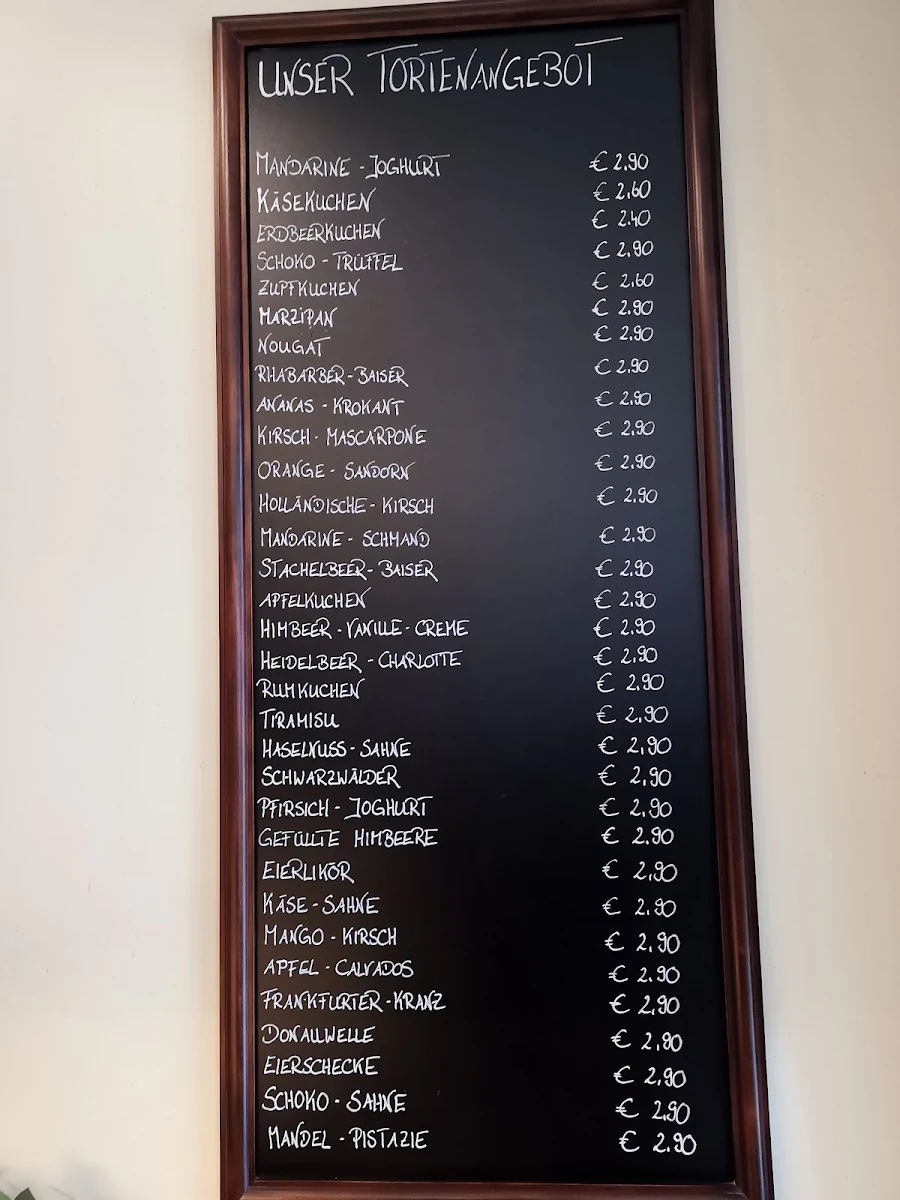 UNSER TORTENANGEBOT
MANDARINE - JOGHURT € 2.90
KÄSEKUCHEN € 2.60
ERDBEERKUCHEN € 2.40
SCHOKO - TRÜFFEL € 2.90
ZUPFKUCHEN € 2.60
MARZIPAN € 2.90
NOUGAT € 2.90
RHABARBER - BAISER € 2.90
ANANAS - KROKANT € 2.90
KIRSCH - MASCARPONE € 2.90
ORANGE - SANDORN € 2.90
HOLLÄNDISCHE - KIRSCH € 2.90
MANDARINE - SCHMAND € 2.90
STACHELBEER - BAISER € 2.90
APFELKUCHEN € 2.90
HIMBEER - VANILLE - CREME € 2.90
HEIDELBEER - CHARLOTTE € 2.90
RUMKUCHEN € 2.90
TIRAMISU € 2.90
HASELNUSS - SAHNE € 2.90
SCHWARZWÄLDER € 2.90
PFIRSICH - JOGHURT € 2.90
GEFÜLLTE HIMBEERE € 2.90
EIERLIKÖR € 2.90
KÄSE - SAHNE € 2.90
MANGO - KIRSCH € 2.90
APFEL - CALVADOS € 2.90
FRANKFURTER - KRANZ € 2.90
DONAUWELLE € 2.90
EIERSCHECKE € 2.90
SCHOKO - SAHNE € 2.90
MANDEL - PISTAZIE € 2.90